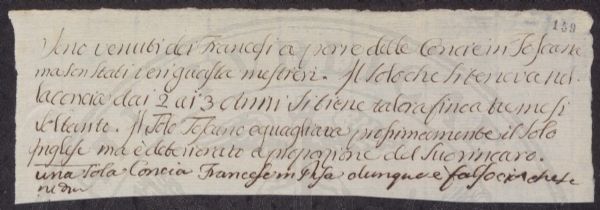 159
Sono venuti dei Francesi a porre delle Concie in Toscana
ma son stati veri guasta mestieri. Il solo che si teneva nel
la concia dai 2 ai 3 anni si tiene talora fino a tre mesi
soltanto. Il Solo Toscano eguagliava prossimamente il Solo
Inglese ma è deteriorato a proporzione del suo rincaro.
una sola Concia Francese in Pisa dunque è falso che